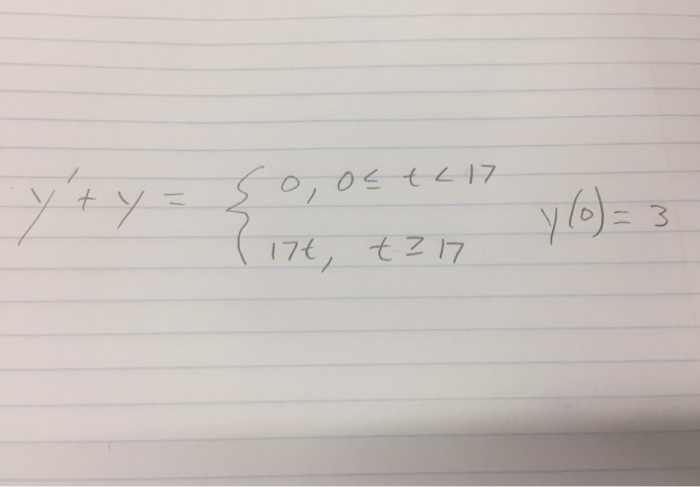 y' + y = { 0, 0 ≤ t < 17
17t, t ≥ 17
y(0) = 3